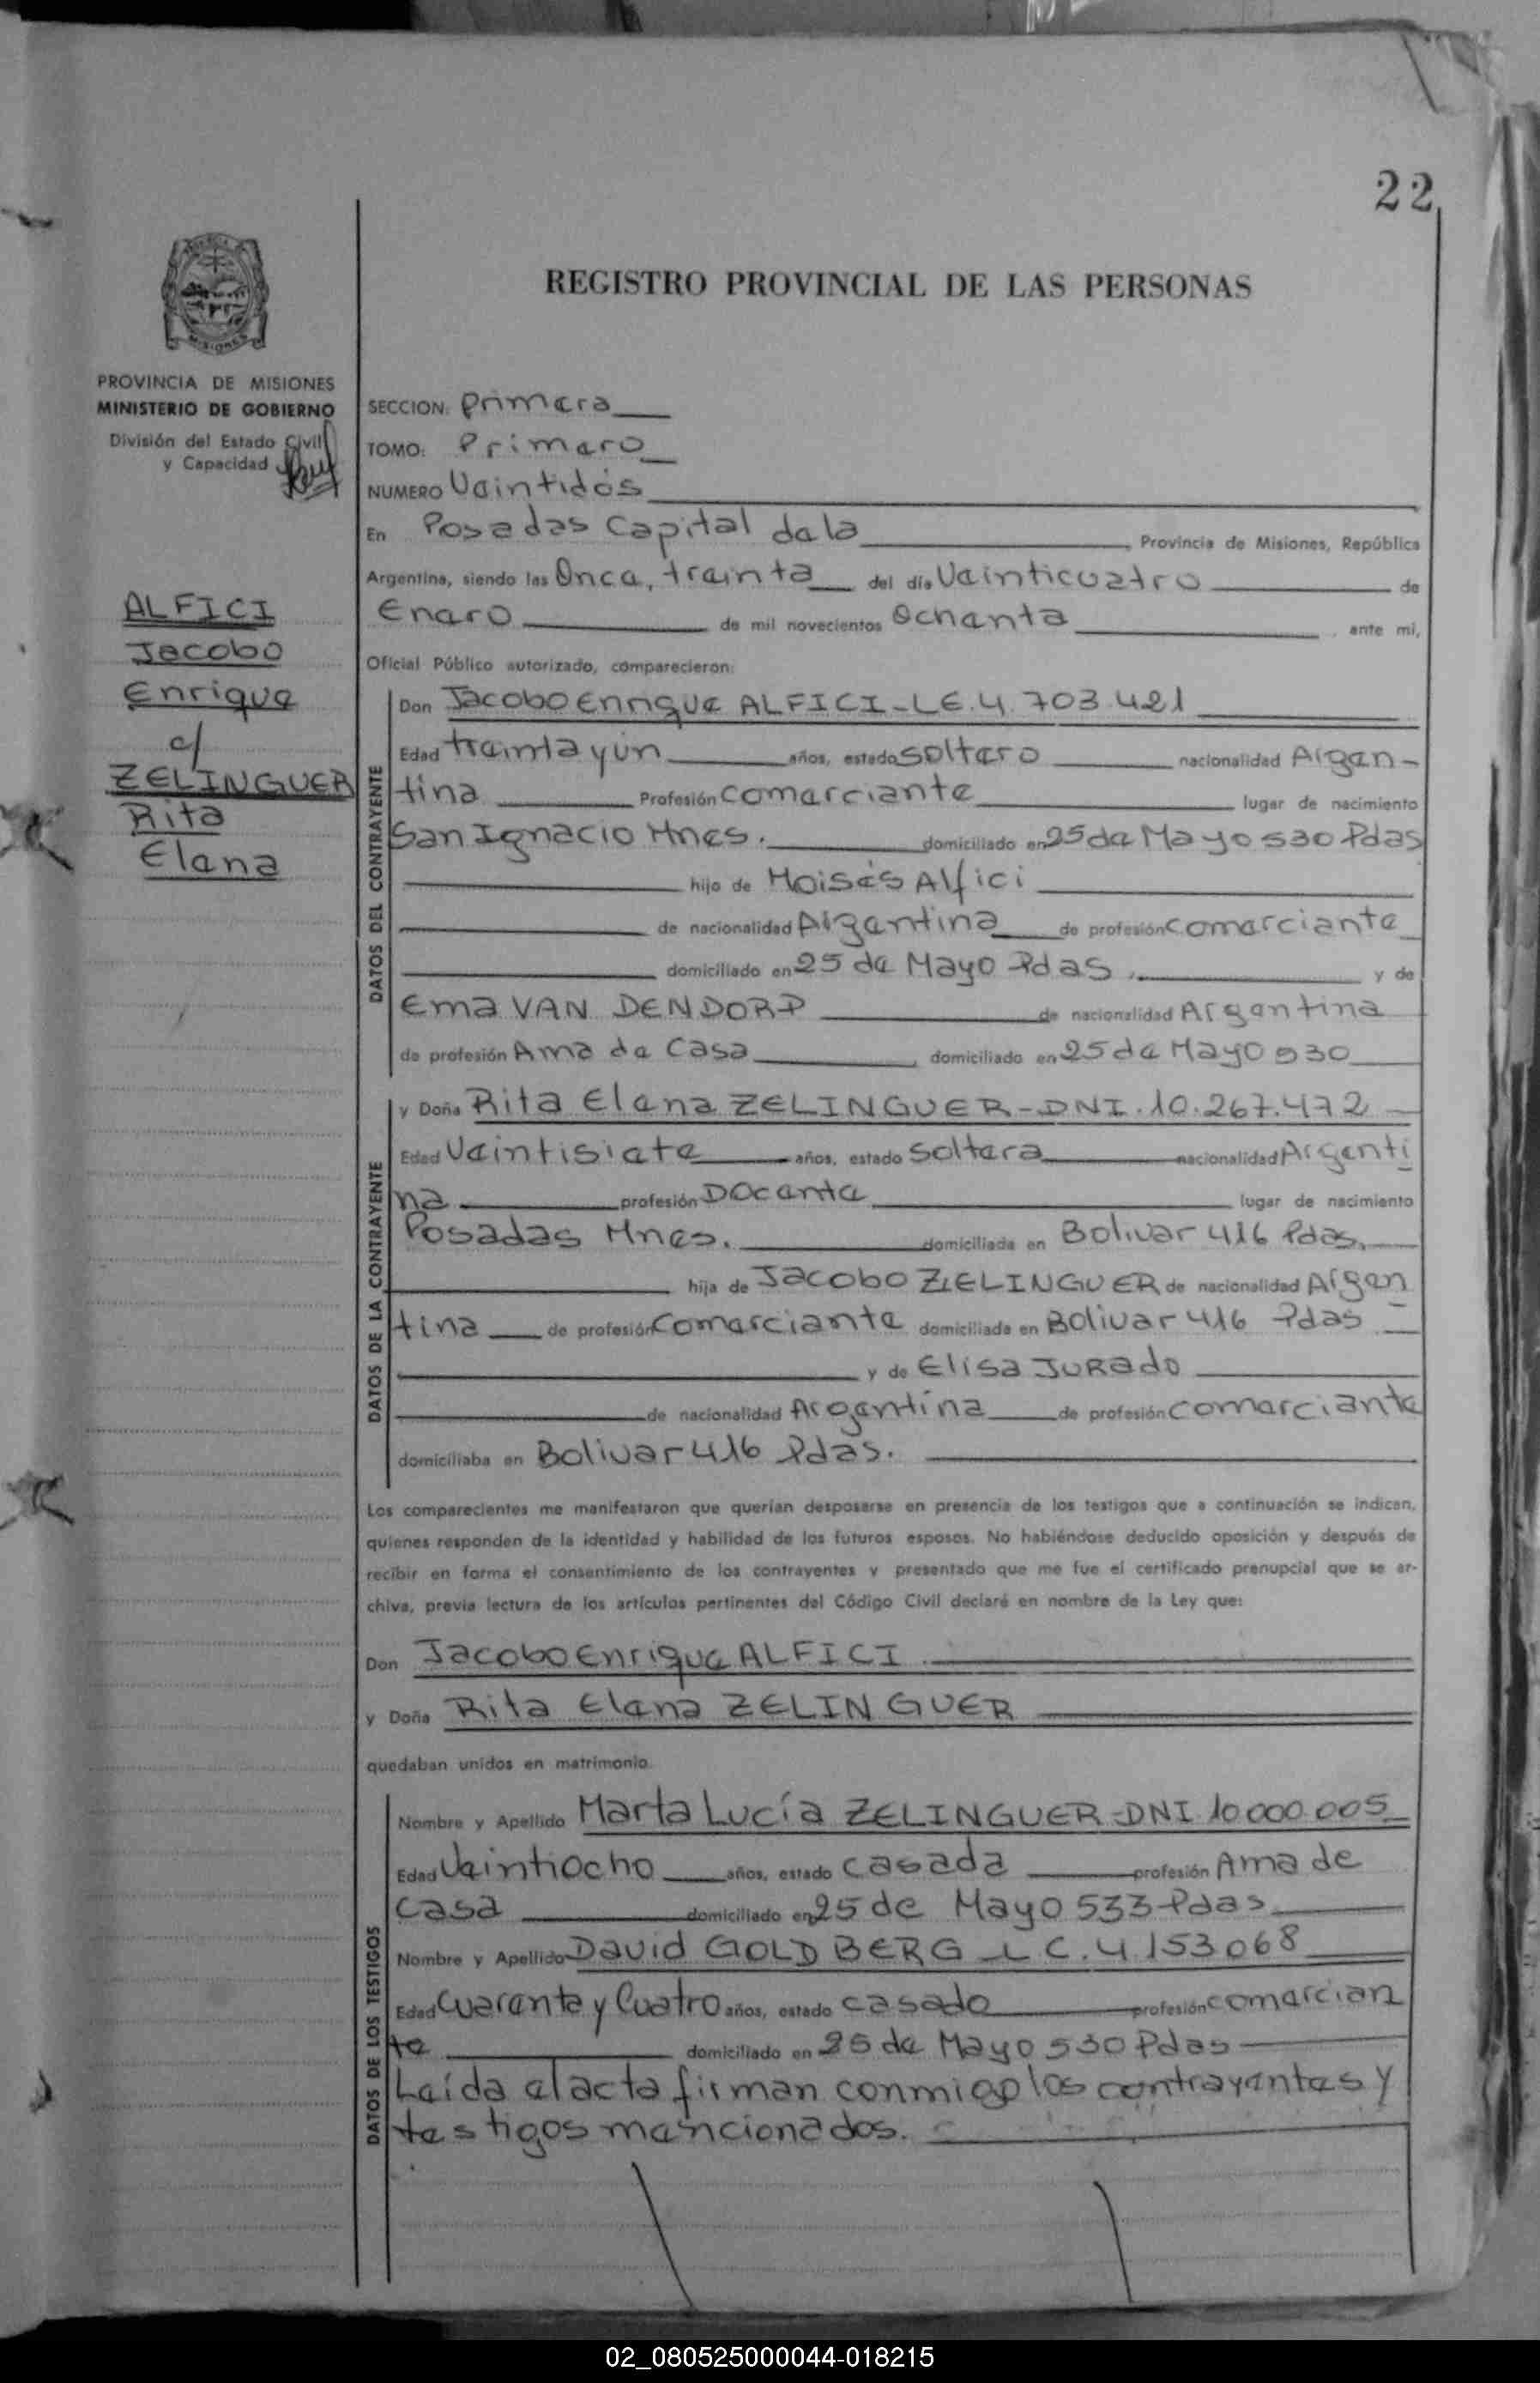 22
REGISTRO PROVINCIAL DE LAS PERSONAS
MISIONES
PROVINCIA DE MISIONES
MINISTERIO DE GOBIERNO
División del Estado Civil
y Capacidad
ALFICI
Jacobo
Enrique
c/
ZELINGUER
Rita
Elena
SECCION: Primera
TOMO: Primero
NUMERO Veintidós
En Posadas Capital de la Provincia de Misiones, República
Argentina, siendo las Once, treinta del día Veinticuatro de
Enero de mil novecientos Ochenta ante mí,
Oficial Público autorizado, comparecieron:
DATOS DEL CONTRAYENTE
Don Jacobo Enrique ALFICI - L.E. 4.703.421
Edad treinta y un años, estado soltero nacionalidad Argen-
tina Profesión comerciante lugar de nacimiento
San Ignacio Mnes. domiciliado en 25 de Mayo 530 Pdas
hijo de Moisés Alfici
de nacionalidad Argentina de profesión comerciante
domiciliado en 25 de Mayo Pdas. y de
Ema VAN DENDORP de nacionalidad Argentina
de profesión Ama de Casa domiciliado en 25 de Mayo 530
DATOS DE LA CONTRAYENTE
y Doña Rita Elena ZELINGUER - DNI. 10.267.472
Edad Veintisiete años, estado soltera nacionalidad Argenti
na profesión Docente lugar de nacimiento
Posadas Mnes. domiciliada en Bolivar 416 Pdas.
hija de Jacobo ZELINGUER de nacionalidad Argen
tina de profesión Comerciante domiciliada en Bolivar 416 Pdas
y de Elisa JURADO
de nacionalidad Argentina de profesión comerciante
domiciliaba en Bolivar 416 Pdas.
Los comparecientes me manifestaron que querían desposarse en presencia de los testigos que a continuación se indican,
quienes responden de la identidad y habilidad de los futuros esposos. No habiéndose deducido oposición y después de
recibir en forma el consentimiento de los contrayentes y presentado que me fue el certificado prenupcial que se ar-
chiva, previa lectura de los artículos pertinentes del Código Civil declaré en nombre de la Ley que:
Don Jacobo Enrique ALFICI
y Doña Rita Elena ZELINGUER
quedaban unidos en matrimonio.
DATOS DE LOS TESTIGOS
Nombre y Apellido Marta Lucía ZELINGUER - DNI 10.000.005
Edad Veintiocho años, estado casada profesión Ama de
Casa domiciliado en 25 de Mayo 533 Pdas
Nombre y Apellido David GOLDBERG - L.C. 4.153.068
Edad Cuarenta y Cuatro años, estado casado profesión comercian
te domiciliado en 25 de Mayo 530 Pdas
Leída el acta firman conmigo los contrayentes y
testigos mencionados.
02_080525000044-018215